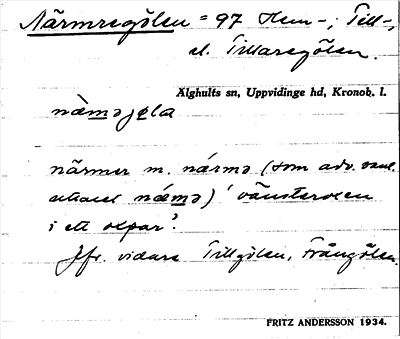 Närmregölen = 97 Hem-; Till-,
el. Tillaregölen.
Älghults sn, Uppvidinge hd, Kronob. l.
nä̀məjøla
närmer m. nä́rmə (som adv. vanl.
nä́mə) 'vänsteroxen
i ett oxpar'.
Jfr. vidare Tillgölen, Frångölen.
FRITZ ANDERSSON 1934.